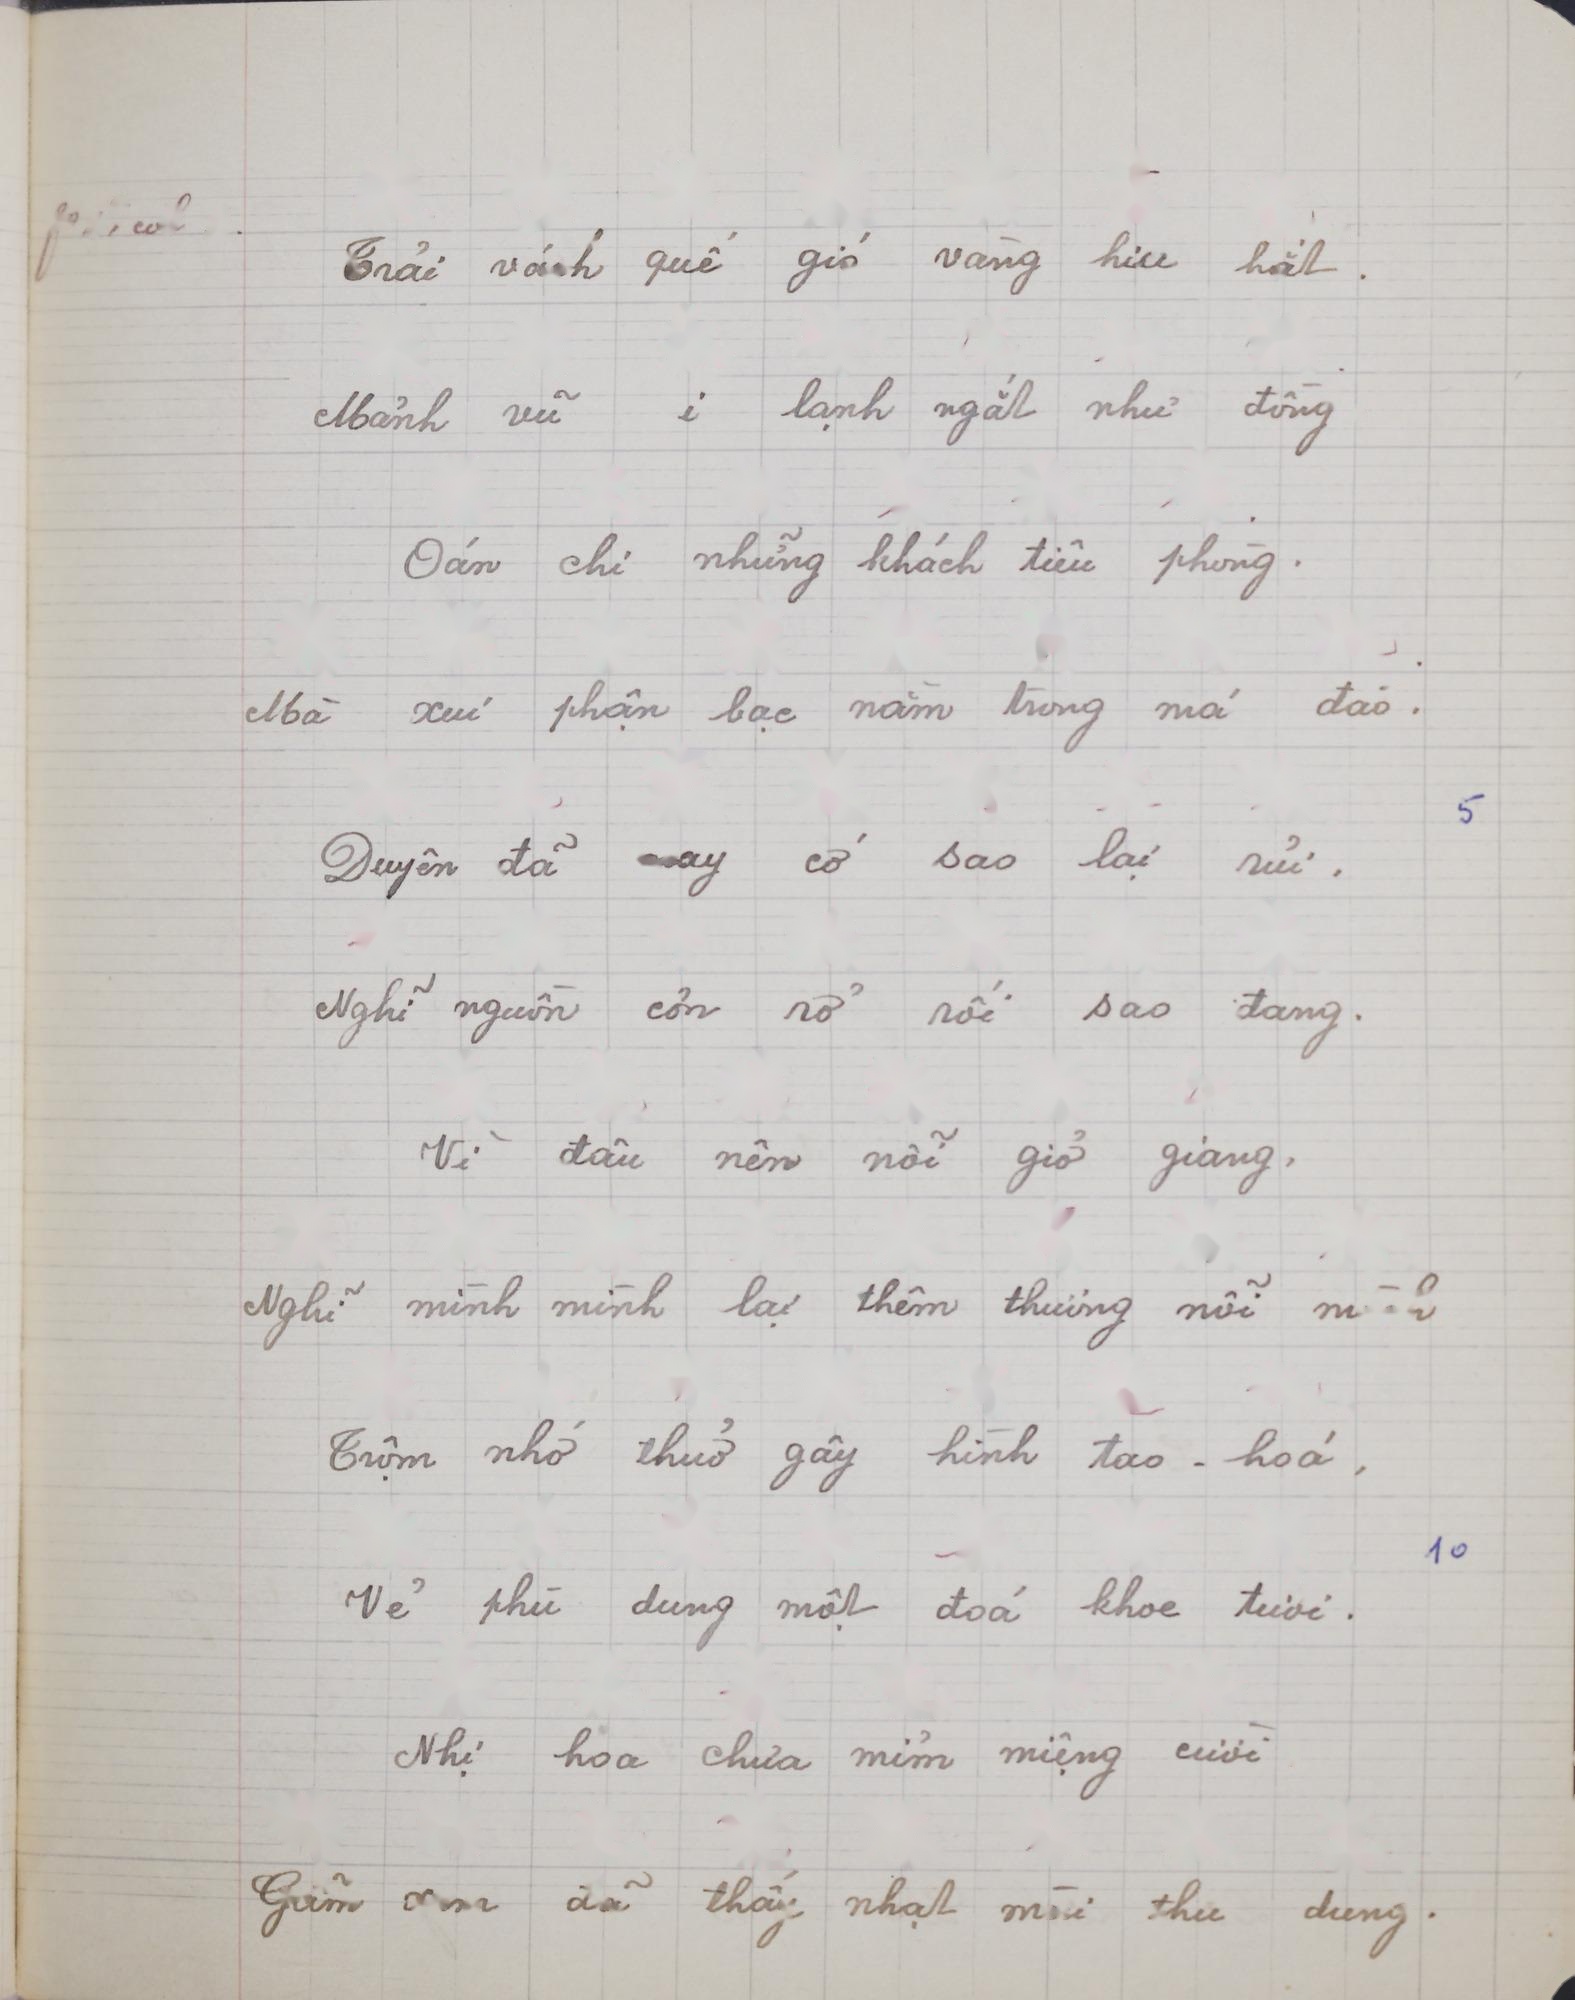 Trải vách quế gió vàng hiu hắt.
Mảnh vũ i lạnh ngắt như đồng
Oán chi những khách tiêu phòng.
Mà xui phận bạc nằm trong má đào.
5
Duyên đã may cớ sao lại rủi,
Nghĩ nguồn cơn rở rối sao đang.
Vì đâu nên nỗi giở giang,
Nghĩ mình mình lại thêm thương nỗi mình
Trộm nhớ thuở gây hình tạo - hoá,
10
Vẻ phù dung một đoá khoe tươi.
Nhị hoa chưa mỉm miệng cười
Gấm đã thấy nhạt mùi thu dung.